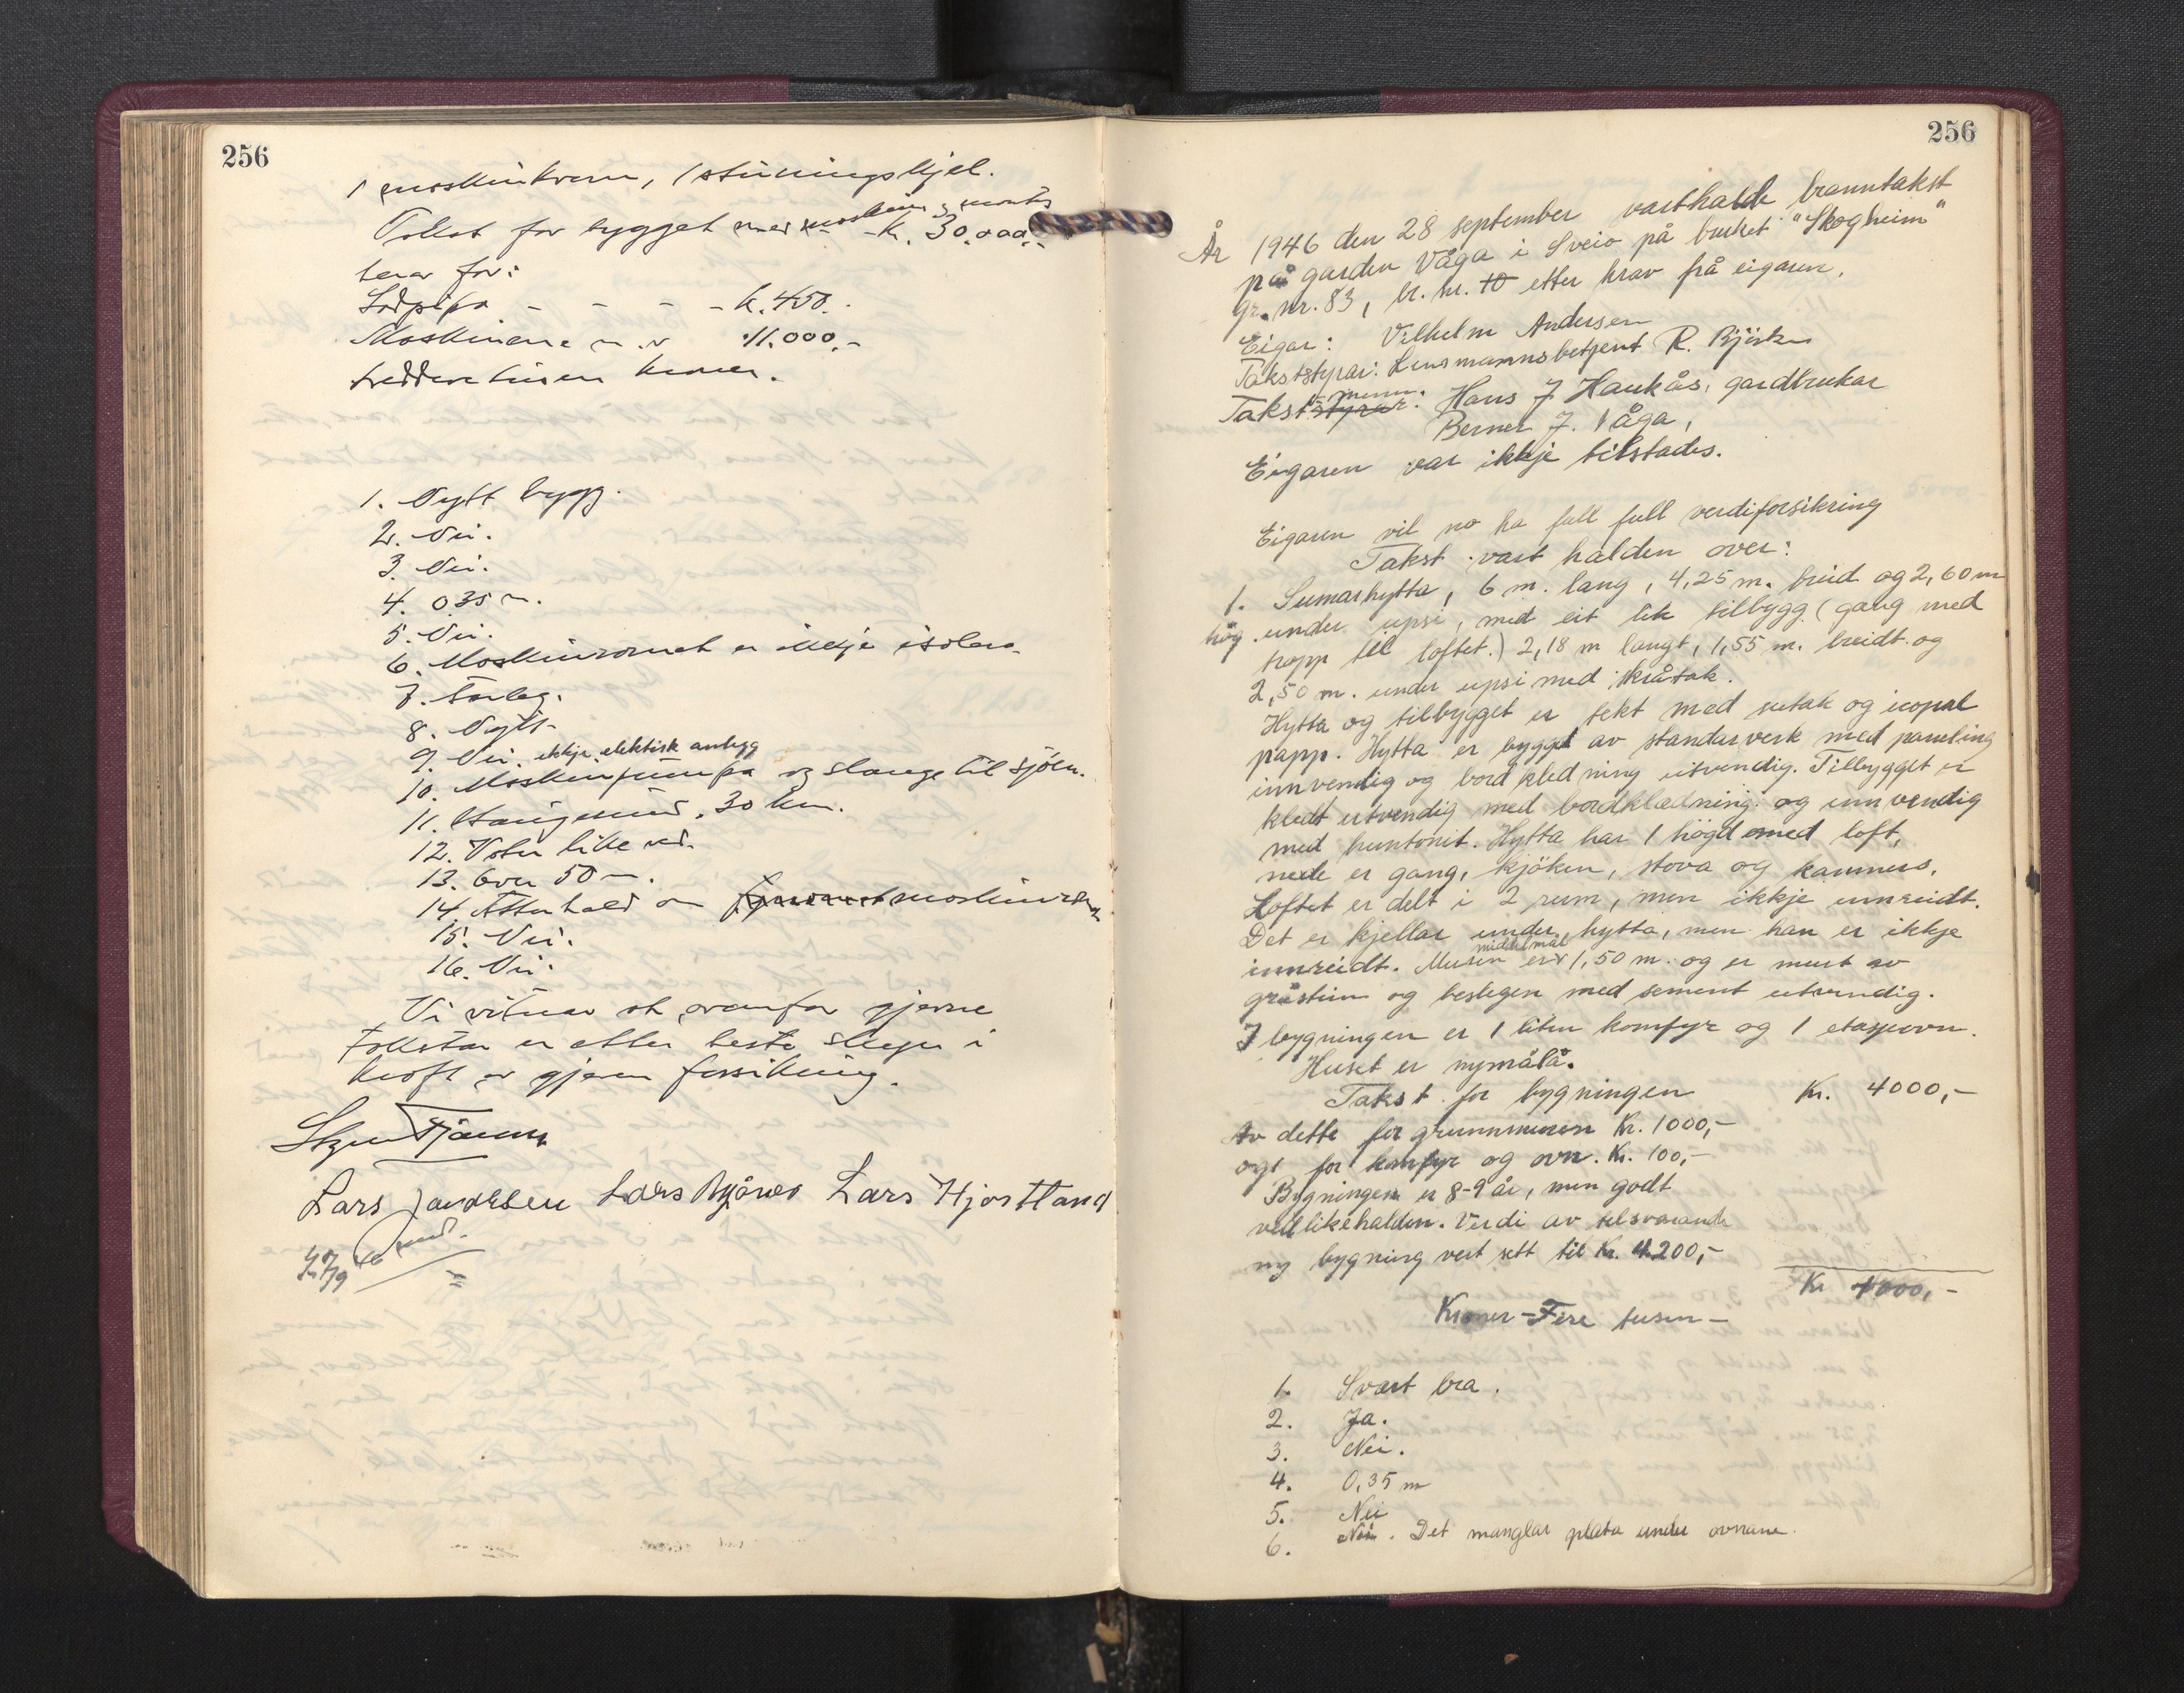 256
1 maskinkvern, 1 støningskjel.
Takst for bygget med maskiner og montr
- k. 30.000,-
herav for:
Lodpipa - - - - k. 450.-
Maskinene m. v 11.000,-
treddve tusen kroner.
1. Nytt bygg.
2. Nei.
3. Nei.
4. 0.35 m.
5. Nei.
6. Maskinromet er ikkje isolera.
7. Farleg.
8. Nytt.
9. Nei. ikkje elektisk anlegg
10. Maskinpumpa og slange til sjöen.
11. Haugesund. 30 km.
12. Vatn like ved.
13. Over 50 m.
14. Atterhald om maskinrom
15. Nei.
16. Nei.
Vi vitnar at ovanfor gjevne
takstar er etter beste skjøn i
kraft av gjeven forsikring.
Lars Hjortland
256
År 1946 den 28 september vart halde branntakst
på garden Våga i Sveio på bruket "Skogheim"
gr. nr. 83, br. nr. 10 etter krav frå eigaren.
Eigar: Vilhelm Andersen
Takststyrar: Lensmannsbetjent R. Bjørkum
Takststyrar menn: Hans J Haukås, gardbrukar
Berner J. Våga,
Eigaren var ikkje tilstades.
Eigaren vil no ha full full verdiforsikring
Takst vart halden over:
1. Sumarhytta, 6 m. lang, 4,25 m. breid og 2,60 m
høg under upsi, med eit lite tilbygg (gang med
trapp til loftet.) 2,18 m langt, 1,55 m. breidt og
2,50 m. under upsi med skråtak.
Hytta og tilbygget er tekt med sutak og icopal
papp. Hytta er bygget av standarverk med paneling
innvendig og bordkledning utvendig. Tilbygget er
kledt utvendig med bordklædning og innvendig
med huntonit. Hytta har 1 högd med loft,
nede er gang, kjöken, stova og kammers.
Loftet er delt i 2 rum, men ikkje innreidt.
Det er kjellar under hytta, men han er ikkje
innreidt. Muren er middelmål 1,50 m. og er murt av
gråstein og beslegen med sement utvendig.
I bygningen er 1 liten komfyr og 1 etasjeovn.
Huset er nymåla.
Takst for bygningen Kr. 4000,-
Av dette for grunnmuren Kr. 1000,-
og for komfyr og ovn. Kr. 100,-
Bygningen er 8-9 år, men godt
vedlikehalden. Verdi av tilsvarande
ny bygning vert sett til Kr. 4200,-
Kr 4000,-
Kroner - Fire tusen -
1. Svært bra.
2. Ja.
3. Nei.
4. 0,35 m
5. Nei
6. Nei. Det manglar plata under ovnane.